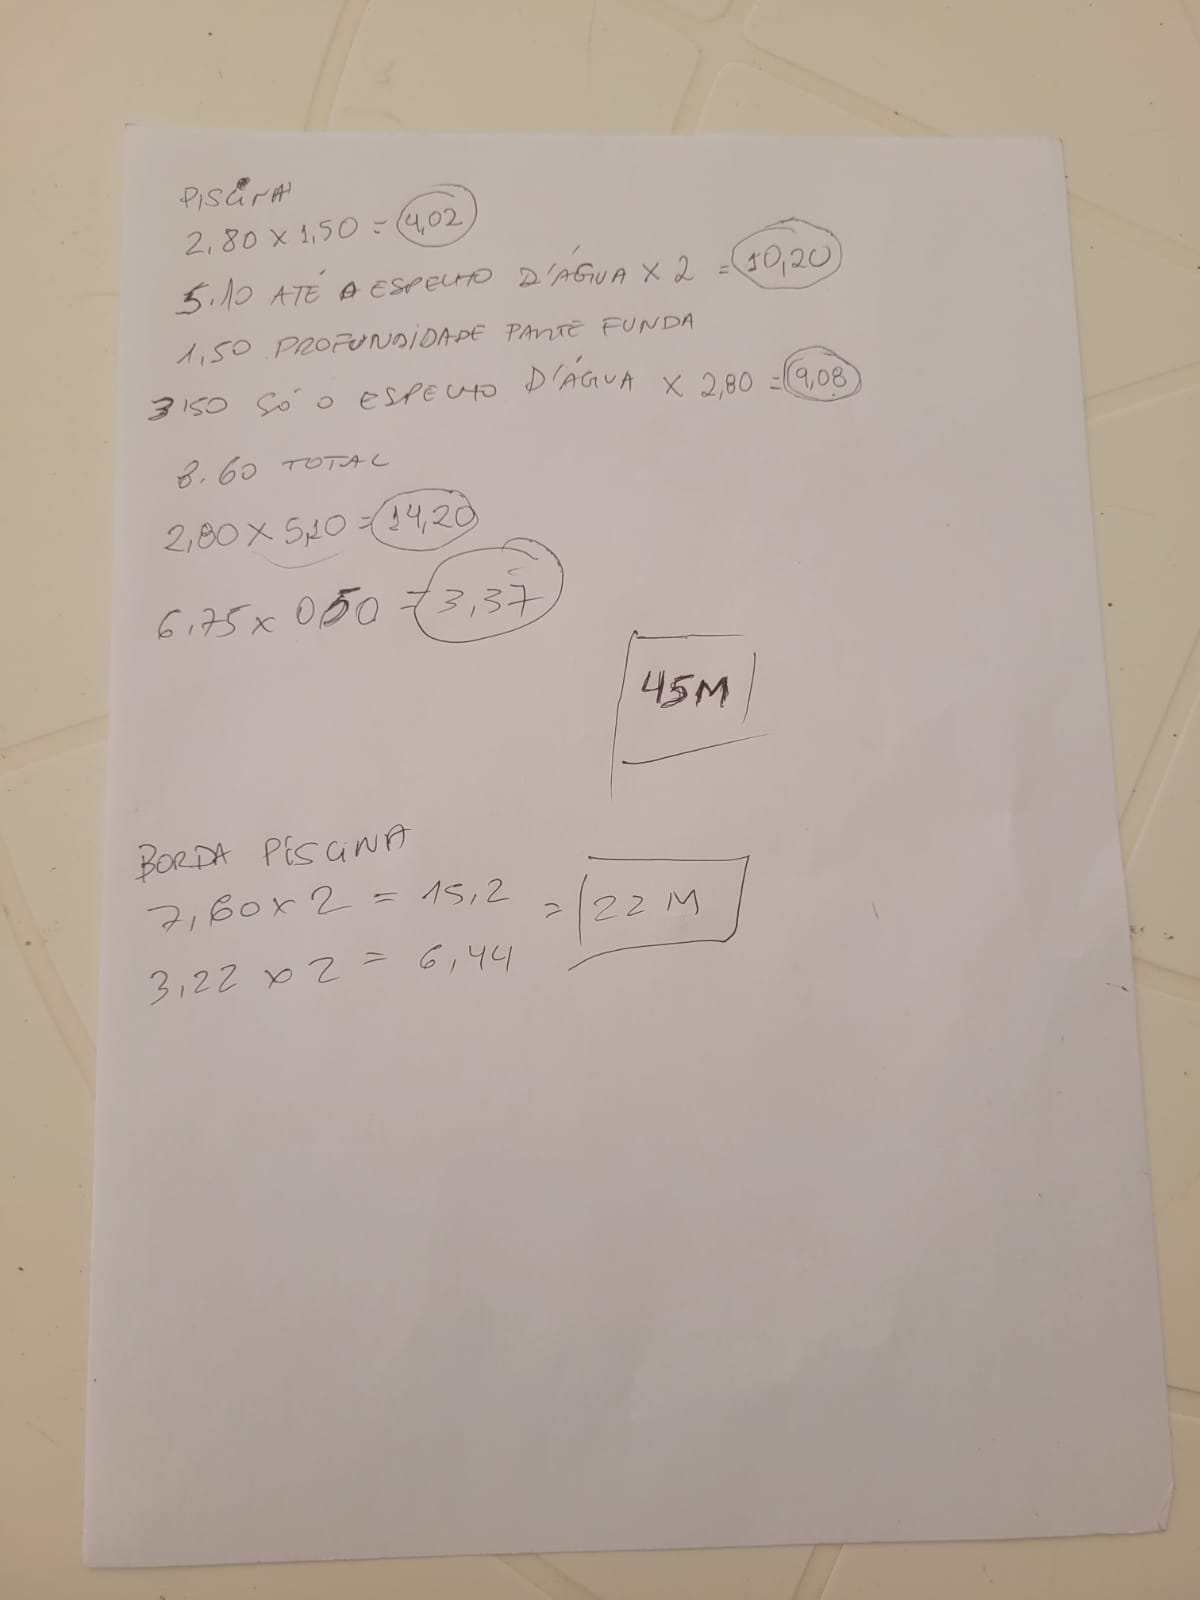 PISCINA
2,80 x 1,50 = 4,02
5.10 ATÉ O ESPELHO D'ÁGUA x 2 = 10,20
1,50 PROFUNDIDADE PARTE FUNDA
3,50 SÓ O ESPELHO D'ÁGUA x 2,80 = 9,08
8.60 TOTAL
2,80 x 5,10 = 14,20
6,75 x 0,50 = 3,37
45M
BORDA PISCINA
7,60 x 2 = 15,2 = 22 M
3,22 x 2 = 6,44